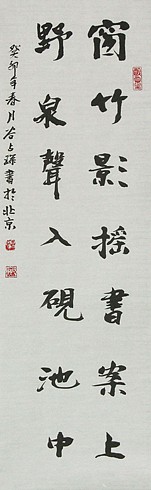 窗竹影摇書案上
野泉聲入硯池中
癸卯年春月谷占祥書於北京